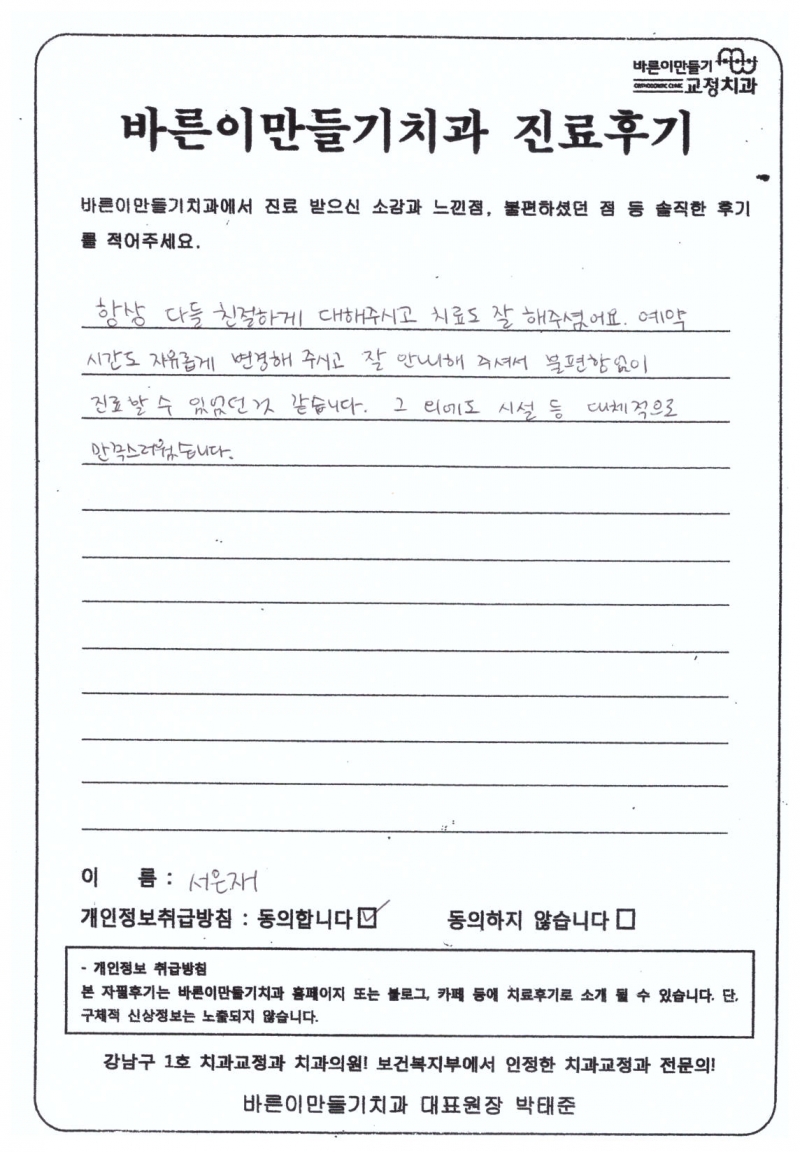 바른이만들기
ORTHODONTIC CLINIC 교정치과
바른이만들기치과 진료후기
바른이만들기치과에서 진료 받으신 소감과 느낀점, 불편하셨던 점 등 솔직한 후기
를 적어주세요.
항상 다들 친절하게 대해주시고 치료도 잘 해주셨어요. 예약
시간도 자유롭게 변경해 주시고 잘 안내해 주셔서 불편함없이
진료할 수 있었던것 같습니다. 그 외에도 시설 등 대체적으로
만족스러웠습니다.
이 름 : 서은재
개인정보취급방침 : 동의합니다 ☑ 동의하지 않습니다 □
- 개인정보 취급방침
본 자필후기는 바른이만들기치과 홈페이지 또는 블로그, 카페 등에 치료후기로 소개 될 수 있습니다. 단,
구체적 신상정보는 노출되지 않습니다.
강남구 1호 치과교정과 치과의원! 보건복지부에서 인정한 치과교정과 전문의!
바른이만들기치과 대표원장 박태준